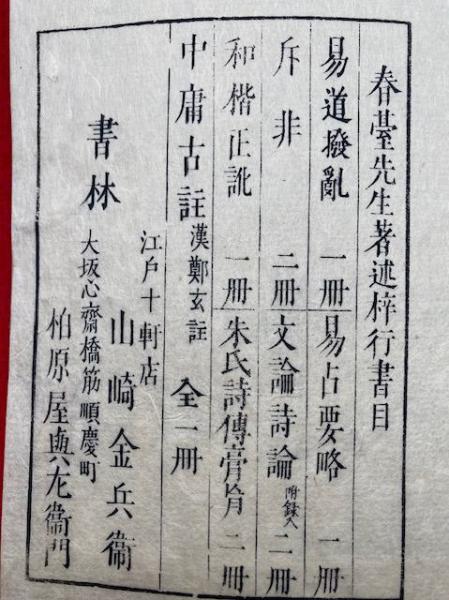 春臺先生著述梓行書目
易道撥亂 一冊 易占要略 一冊
斥非 二冊 文論詩論 附録入 二冊
和楷正訛 一冊 朱氏詩傳膏肓 二冊
中庸古註 漢鄭玄註 全一冊
書林
江戸十軒店
山崎金兵衞
大坂心齋橋筋順慶町
柏原屋與左衞門